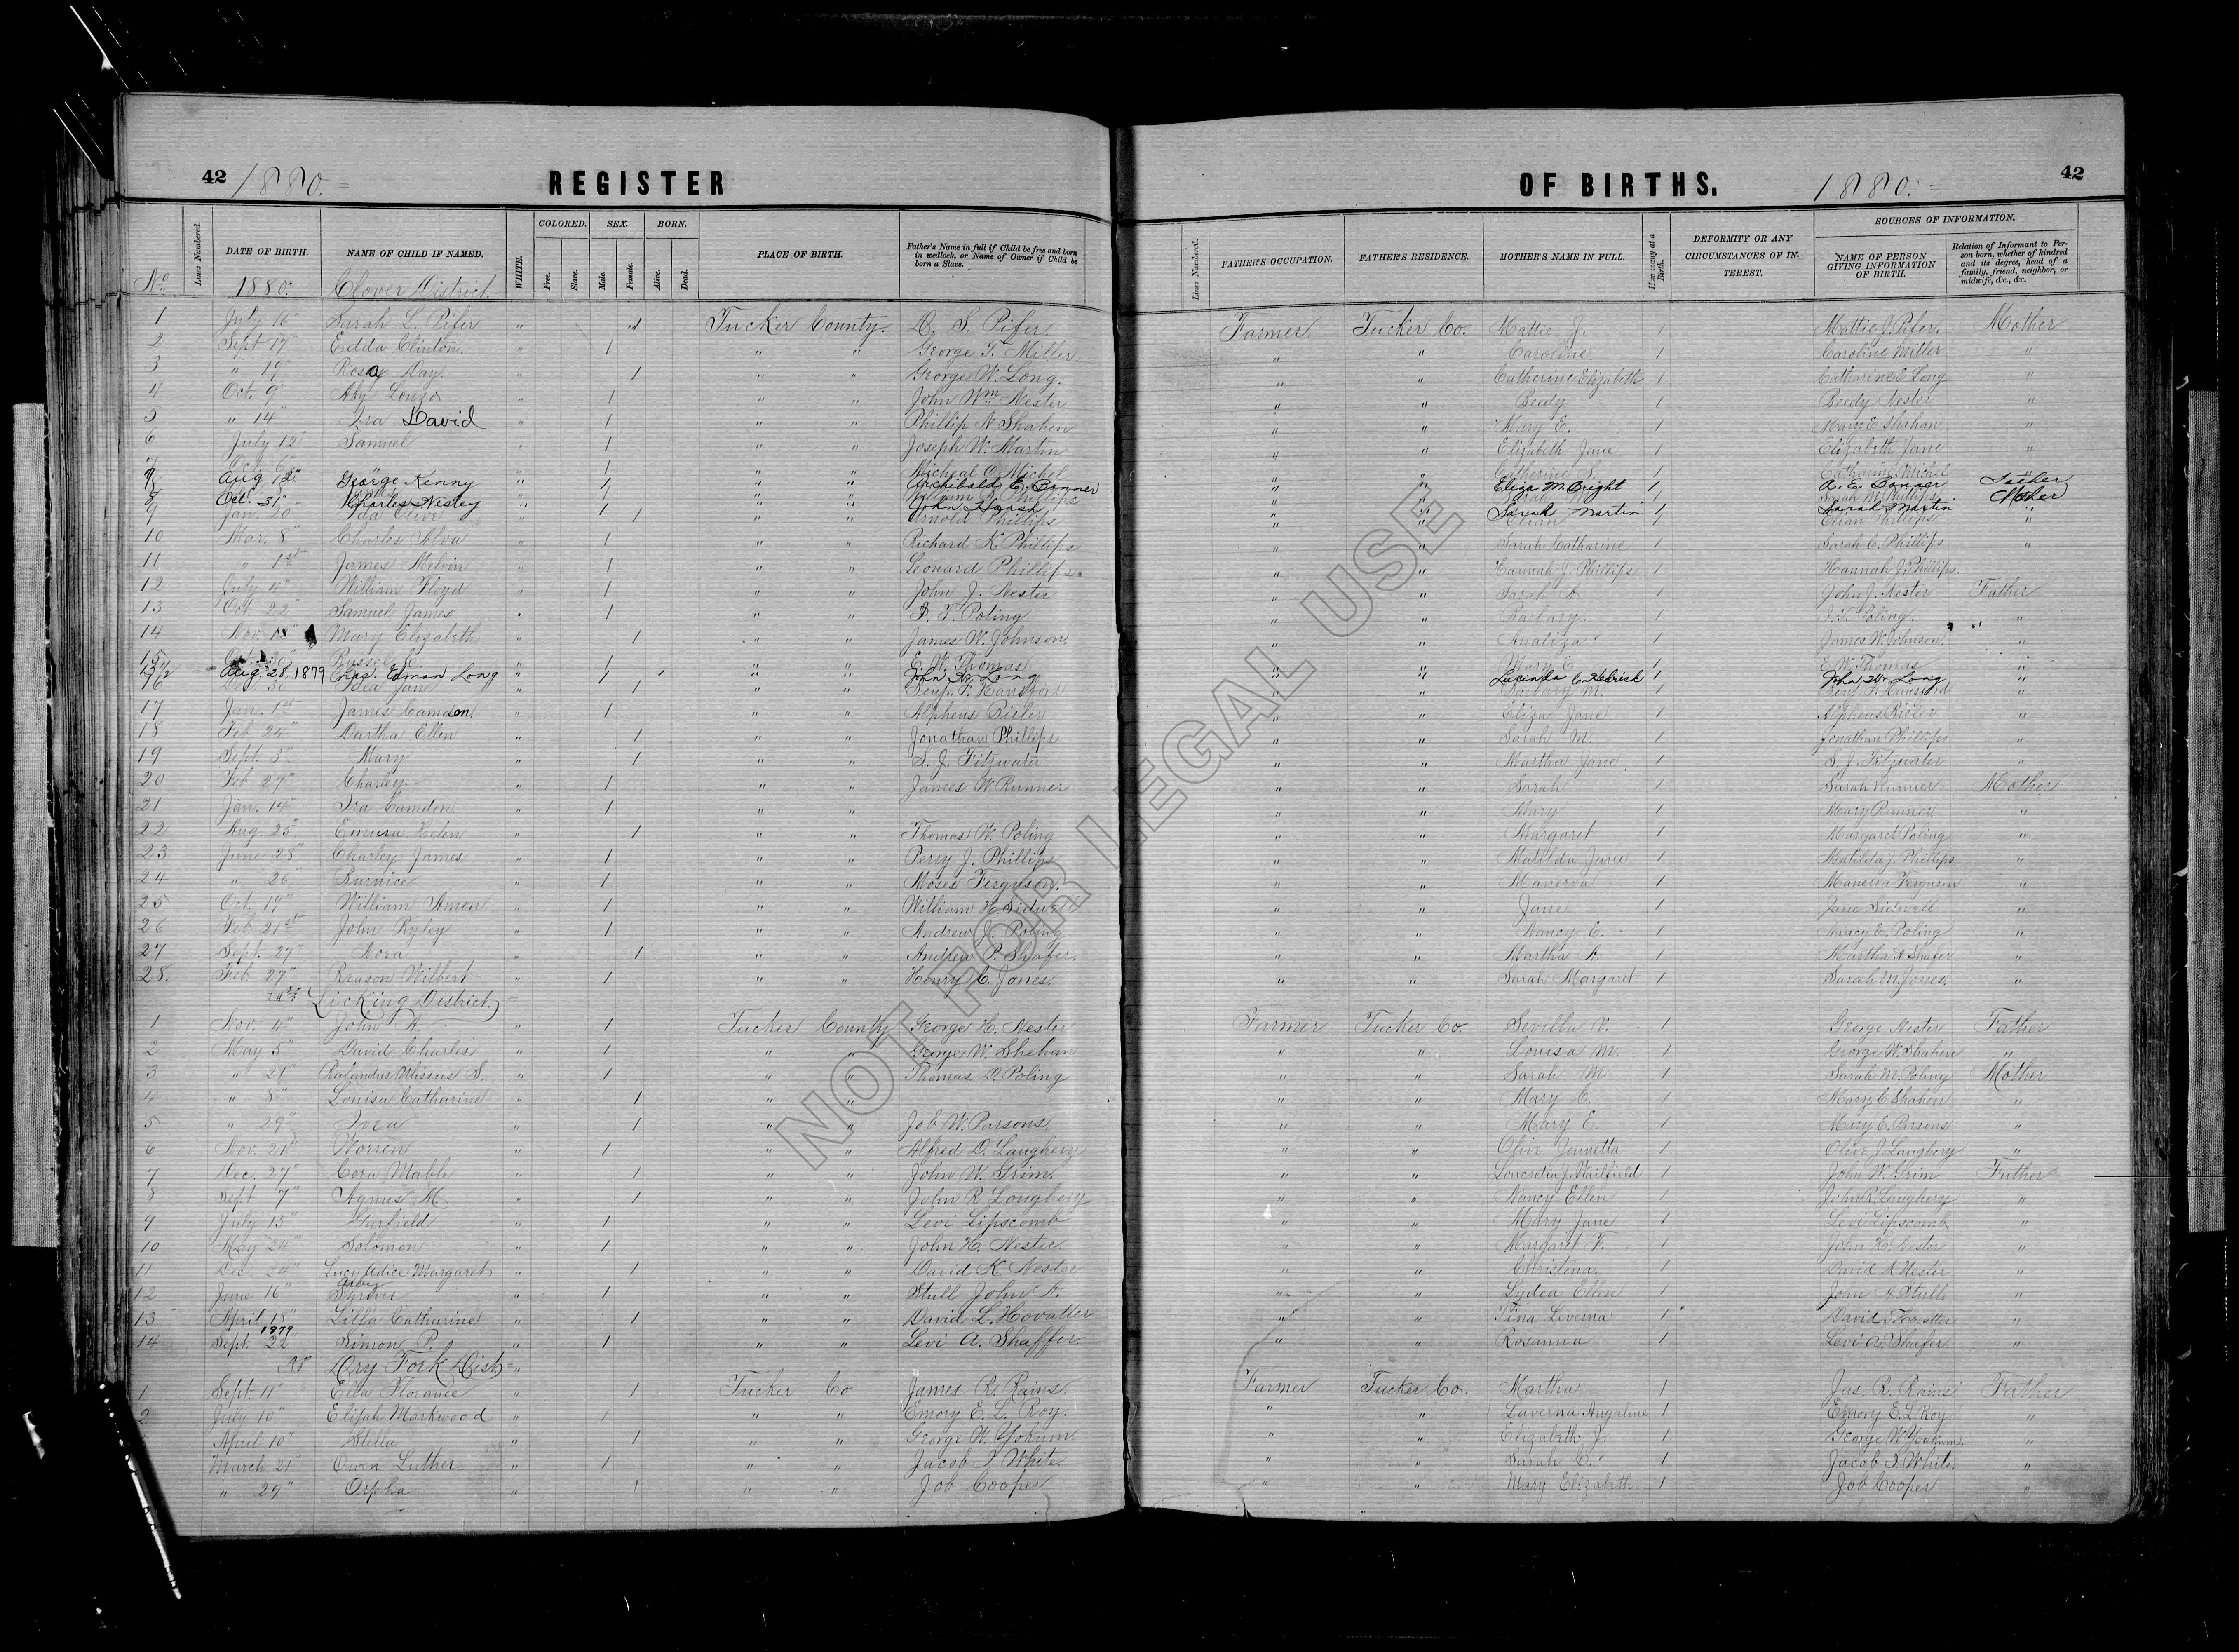 42 1880. REGISTER OF BIRTHS. 1880. 42
Lines Numbered. DATE OF BIRTH. NAME OF CHILD IF NAMED. WHITE. COLORED. Free. Slave. SEX. Male. Female. BORN. Alive. Dead. PLACE OF BIRTH. Father's Name in full if Child be free and born in wedlock, or Name of Owner if Child be born a Slave. Lines Numbered. FATHER'S OCCUPATION. FATHER'S RESIDENCE. MOTHER'S NAME IN FULL. How many at a Birth. DEFORMITY OR ANY CIRCUMSTANCES OF INTEREST. SOURCES OF INFORMATION. NAME OF PERSON GIVING INFORMATION OF BIRTH. Relation of Informant to Person born, whether of kindred and its degree, head of a family, friend, neighbor, or midwife, &c., &c.
No 1880. Clover District.
1 July 16" Sarah L. Pifer " 1 Tucker County. S. Pifer. Farmer. Tucker Co. Mattie J. 1 Mattie J. Pifer. Mother
2 Sept 17" Edda Clinton. " 1 " " George T. Miller. " " Caroline 1 Caroline Miller "
3 " 19" Rosa Day. " 1 " " George W. Long. " " Catherine Elizabeth 1 Catharine E. Long "
4 Oct. 9" Lonzo " 1 " " John Wm Nester " " Beedy 1 Beedy Nester "
5 " 14" Ira David " 1 " " Phillip N Shahen " " Mary E. 1 Mary E Shahan "
6 July 12" Samuel " 1 " " Joseph W. Martin " " Elizabeth Jane 1 Elizabeth Jane "
7 Oct. 6" " 1 " " Micheal O. Michel " " Catherine S. 1 Catharine Michel "
Aug 12" George Kenny " 1 " " Archibald E. Bonner " " Eliza M. Bright 1 A. E. Bonner Father
8 William S. Phillips Sarah M. 1 Sarah M. Phillips Mother
Oct. 31" Charles Wesley " 1 " " John Harsh " " Sarah Martin 1 Sarah Martin "
9 Jan. 20" Ida Olive " 1 " " Arnold Phillips " " Elian 1 Elian Phillips "
10 Mar. 8" Charles Alva " 1 " " Richard K. Phillips " " Sarah Catharine 1 Sarah C. Phillips "
11 " 1st James Melvin " 1 " " Leonard Phillips. " " Hannah J. Phillips 1 Hannah J. Phillips.
12 July 4" William Floyd " 1 " " John J. Nester " " Sarah A 1 John J. Nester Father
13 Oct. 22" Samuel James " 1 " " Poling " " Barbary. 1 Poling. "
14 Nov. 18" Mary Elizabeth " 1 " " James W. Johnson. " " Analiza 1 James W. Johnson. "
15 Oct. 30" Russel E. " 1 " " E. W. Thomas " " Mary E 1 E. W. Thomas "
15 1/2 Aug. 28, 1879 Chas. Edman Long " 1 " " John W. Long " " Lucinda C. Hedrick 1 John W. Long "
16 Dec. 30" Jane " 1 " " Benj. F. Hansford " " Barbary M. 1 Benj. F. Hansford "
17 Jan. 1st James Camdon. " 1 " " Alpheus Bieler " " Eliza Jane 1 Alpheus Bieler "
18 Feb 24" Dartha Ellen " 1 " " Jonathan Phillips " " Sarah M. 1 Jonathan Phillips "
19 Sept. 3" Mary " 1 " " S. J. Fitzwater " " Martha Jane. 1 S. J. Fitzwater "
20 Feb 27" Charley " 1 " " James W Runner " " Sarah 1 Sarah Runner. Mother
21 Jan. 14" Ira Camdon. " 1 " " " " Mary 1 Mary Runner. "
22 Aug. 25" Emma Helen " 1 " " Thomas W. Poling " " Margaret 1 Margaret Poling "
23 June 28" Charley James " 1 " " Perry J. Phillips " " Matilda Jane 1 Matilda J. Phillips "
24 " 26" Burnice " 1 " " Moses Ferguson. " " Manerva 1 Manerva Ferguson "
25 Oct. 19" William Amon " 1 " " William H. Sidwell " " Jane 1 Jane Sidwell "
26 Feb. 21st John Ryley " 1 " " Andrew J. Poling " " Nancy E. 1 Nancy E. Poling "
27 Sept. 27" Nora " 1 " " Andrew P. Shafer. " " Martha A. 1 Martha A Shafer "
28. Feb. 27" Reason Wilbert " 1 " " Henry C. Jones. " " Sarah Margaret 1 Sarah M. Jones. "
Licking District.
1 Nov. 4" John A. " 1 Tucker County George H. Nester Farmer Tucker Co. Sevilla V. 1 George Nester Father
2 May 5" David Charles " 1 " " George W. Shehan " " Louisa M. 1 George W. Shahen "
3 " 21" Ralandus Ulissus S. " 1 " " Thomas D. Poling " " Sarah M 1 Sarah M. Poling Mother
4 " 8" Louisa Catharine " 1 " " " " Mary C. 1 Mary C Shahen "
5 " 29" Ivea " 1 " " Job W. Parsons. " " Mary E. 1 Mary E. Parsons "
6 Nov. 21" Worren " 1 " " Alfred D. Laughery " " Olive Jennetta 1 Olive J. Laughery "
7 Dec. 27" Cora Mable " 1 " " John W. Grim. " " Loucretia J. Wailfield 1 John W. Grim Father
8 Sept 7" Agnus M " 1 " " John R Loughery " " Nancy Ellen 1 John R. Laughery "
9 July 15" Garfield " 1 " " Levi Lipscomb " " Mary Jane 1 Levi Lipscomb "
10 May 24" Solomon " 1 " " John H. Nester. " " Margaret F. 1 John H. Nester "
11 Dec. 24" Lucy Adice Margaret " 1 " " David K Nester " " Christena. 1 David K Nester "
12 June 16" Shriver " 1 " " Stull John A. " " Lydea Ellen 1 John A. Stull "
13 April 18" Lilla Catharine " 1 " " David L. Hovatter " " Tina Leverna 1 David Hovatter "
14 Sept. 22" 1879 Simon P. " 1 " " Levi A. Shaffer. " " Rosanna 1 Levi A. Shafer "
Dry Fork Dist "
1 Sept. 11" Ella Florance " 1 Tucker Co James R. Rains. Farmer Tucker Co. Martha 1 Jas. R. Rains Father
2 July 10" Elijah Markwood " 1 " " Emory E. L. Roy. " " Laverna Angaline 1 Emory E. L. Roy. "
April 10" Stella " 1 " " George W. Yokum " " Elizabeth J. 1 George W. Yoakum. "
March 21" Owen Luther " 1 " " Jacob I. White " " Sarah C. 1 Jacob I. White. "
" 29" Orpha " 1 " " Job Cooper " " Mary Elizabeth 1 Job Cooper "
NOT FOR LEGAL USE